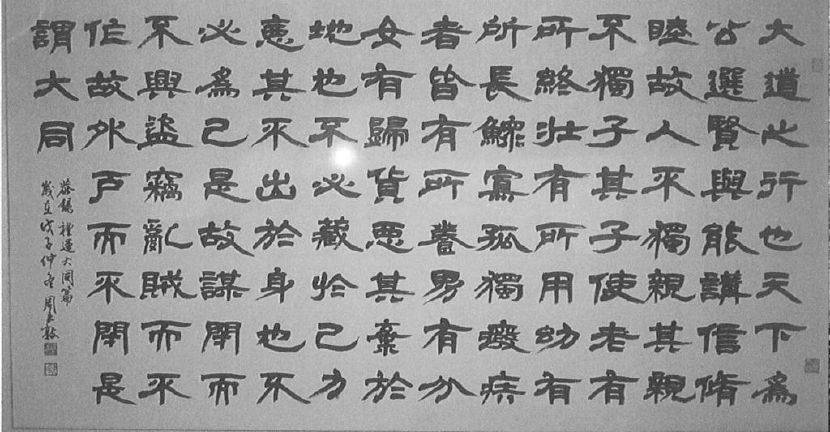 大道之行也天下為
公選賢與能講信脩
睦故人不獨親其親
不獨子其子使老有
所終壯有所用幼有
所長鰥寡孤獨廢疾
者皆有所養男有分
女有歸貨惡其棄於
地也不必藏於己力
惡其不出於身也不
必為己是故謀閉而
不興盜竊亂賊而不
作故外戶而不閉是
謂大同
恭錄禮運大同篇
歲在戊子仲